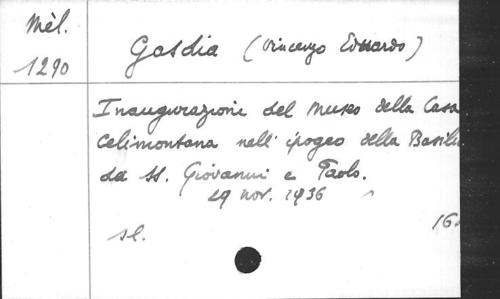 Mèl.
1290
Gasdia (Vincenzo Eduardo)
Inaugurazione del Museo della Casa
Celimontana nell' ipogeo della Basili
da SS. Giovanni e Paolo.
29 nov. 1936
sl. 16.